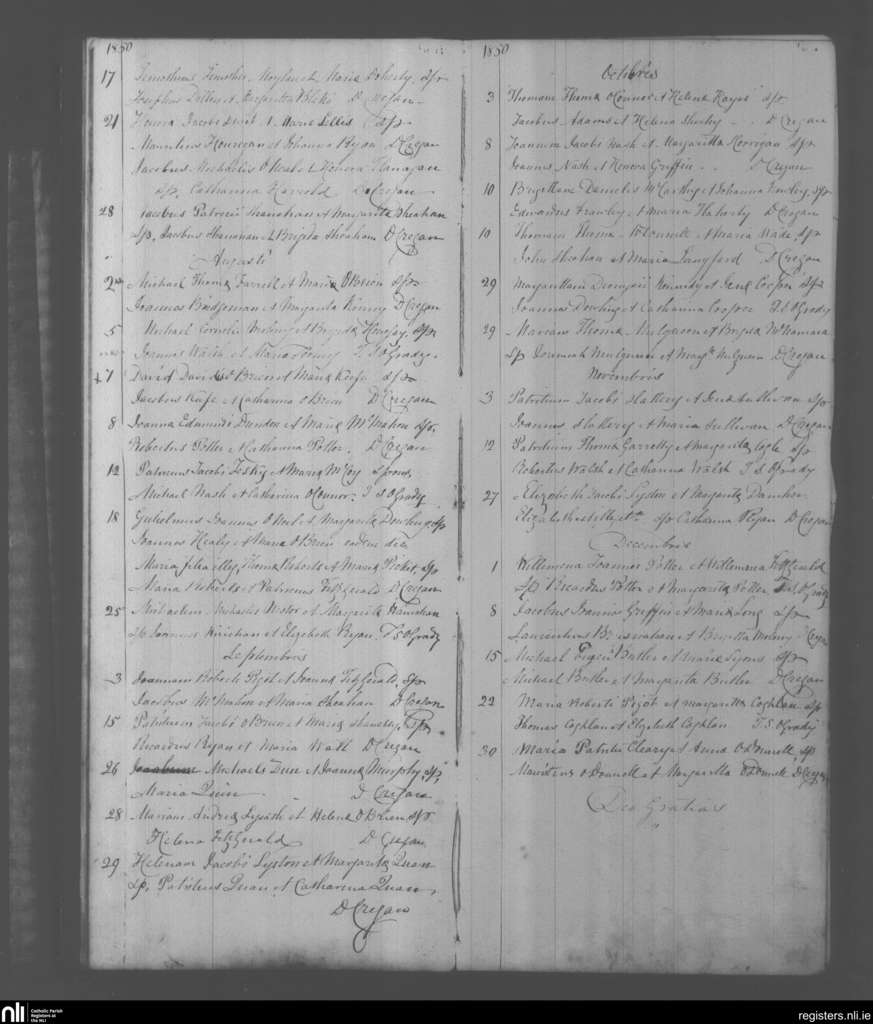 1850
17 Timotheus Timothei Moylan et Maria Doherty, Sps
Josephus Dillon et Margaritta Blake D Cregan
21 Honora Jacobi et Maria Lillis Sps
Mauritius Hourigan et Johanna Ryan D Cregan
Jacobus Michaelis O Neal et Honora Flanagan
Sp. Catharina Harrold D Cregan
28 Jacobus Patricii Shanahan et Margarita Sheahan
Sps. Jacobus Shanahan et Brigida Sheahan D Cregan
Augusti
2 Michael Thoma Farrell et Maria O Brien Sps
Joannes Bridgeman et Margarita Kenny D Cregan
5 Michael Cornelii et Brigida Sps
Joannes Walsh et Maria T S O Grady
+7 David Davidis O Brien et Maria Keefe Sps
Jacobus Keefe et Catharina O Brien D Cregan
8 Joanna Edmundi Dundon et Maria McMahon Sps.
Robertus Potter et Catharina Potter. D Cregan
12 Patricius Jacobi et Maria McCoy Spons.
Michael Nash et Catherina O Connor. T S O Grady
18 Gulielmus Joannis O Neil et Margarita Dowling Sps
Joannes Healy et Maria O Brien eodem die
Maria filia illeg. Thoma Roberts et Maria Sp
Maria Roberts et Patricius FitzGerald D Cregan
25 Michaelem Michaelis et Margarita Hanrahan
Sps Joannes et Elizabeth Ryan. T S O Grady
Septembris
3 Joannem Roberti Pigot et Joanna FitzGerald, Sps
Jacobus McMahon et Maria Sheahan D Cregan
15 Patritium Jacobi O Brien et Maria Sps
Ricardus Ryan et Maria Wall D Cregan
26 Michaelis et Joanna Murphy, Sp.
Maria Quin D Cregan
28 Mariam Andrea et Helena O Brien, Sps
Helena FitzGerald D Cregan
29 Helenam Jacobi Lyston et Margarita Quan
Sp. Patritius Quan et Catharina Quan,
D Cregan
1850
Octobris
3 Thomam Thoma O Connor et Helena Hayes Sps
Jacobus Adams et Helena Sheehy D Cregan
8 Joannem Jacobi Nash et Margaritta Horrigan Sps
Joannes Nash et Honora Griffin D Cregan
10 Brigettam Danielis McCarthy et Johanna Sps
Edwardus Frawley et Maria Flaherty D Cregan
10 Thomam Thoma McConnell et Maria Wade, Sps
John Sheehan et Maria Langford D Cregan
29 Margarittam Dionysii Kennedy et Jane Cooper Sps
Joannes Dowling et Catharina Cooper T S O Grady
29 Mariam Thoma Mulqueen et Brigida McNamara
Sp Jeremiah Mulqueen et Margt Mulqueen D Cregan
Novembris
3 Patritium Jacobi Slattery et Sullivan Sps
Joannes Slattery et Maria Sullivan D Cregan
12 Patritium Thoma Garrelly et Margarita Sps
Robertus Walsh et Catharina Walsh T S O Grady
27 Elizabeth Jacobi Lyston et Margarita
Sps Catharina Ryan D Cregan
Decembris
1 Willemena Joannis Potter et Willemena FitzGerald
Sps Ricardus Potter et Margarita Potter T S O Grady
8 Jacobus Joannis Griffin et Maria Long Sps
Laurentius et Brigitta D Cregan
15 Michael Butler et Maria Lyons Sps
Michael Butler et Margarita Butler D Cregan
22 Maria Roberti Pigot et Margaritta Coghlan Sps
Thomas Coghlan et Elizabeth Coghlan T. S. O Grady
30 Maria Patritii Cleary et Anna O Donnell, Sps
Mauritius O Donnell et Margaritta O Donnell D Cregan
Deo Gratias
nli Catholic Parish
Registers at
the NLI
registers.nli.ie